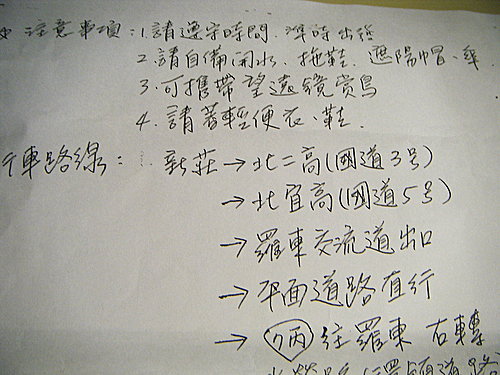 注意事項：1.請遵守時間、準時出發
2.請自備開水、拖鞋、遮陽帽、傘
3.可攜帶望遠鏡賞鳥
4.請著輕便衣、鞋
行車路線：新莊→北二高(國道3号)
→北宜高(國道5号)
→羅東交流道出口
→平面道路直行
→ 7丙 往羅東 右轉